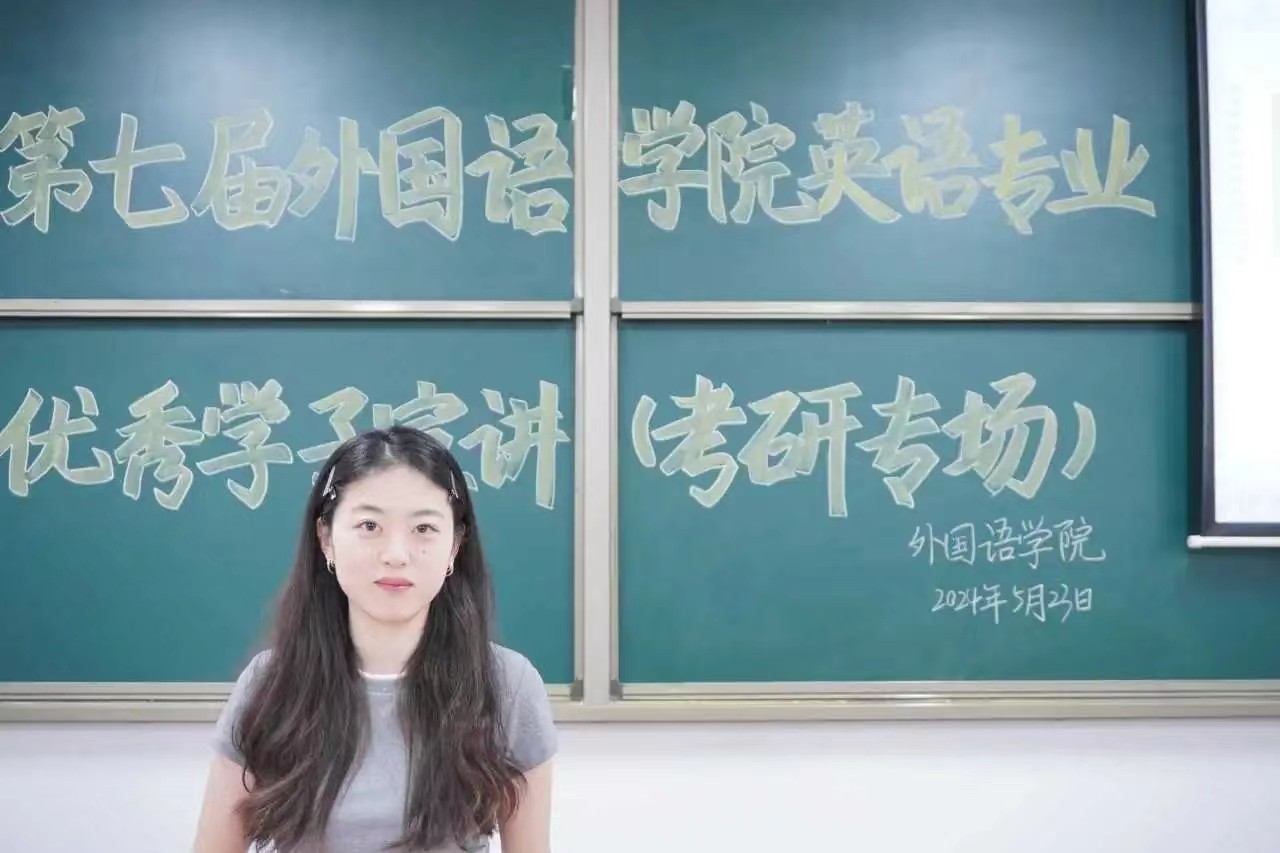 第七届外国语学院英语专业
优秀学子宣讲(考研专场)
外国语学院
2024年5月23日